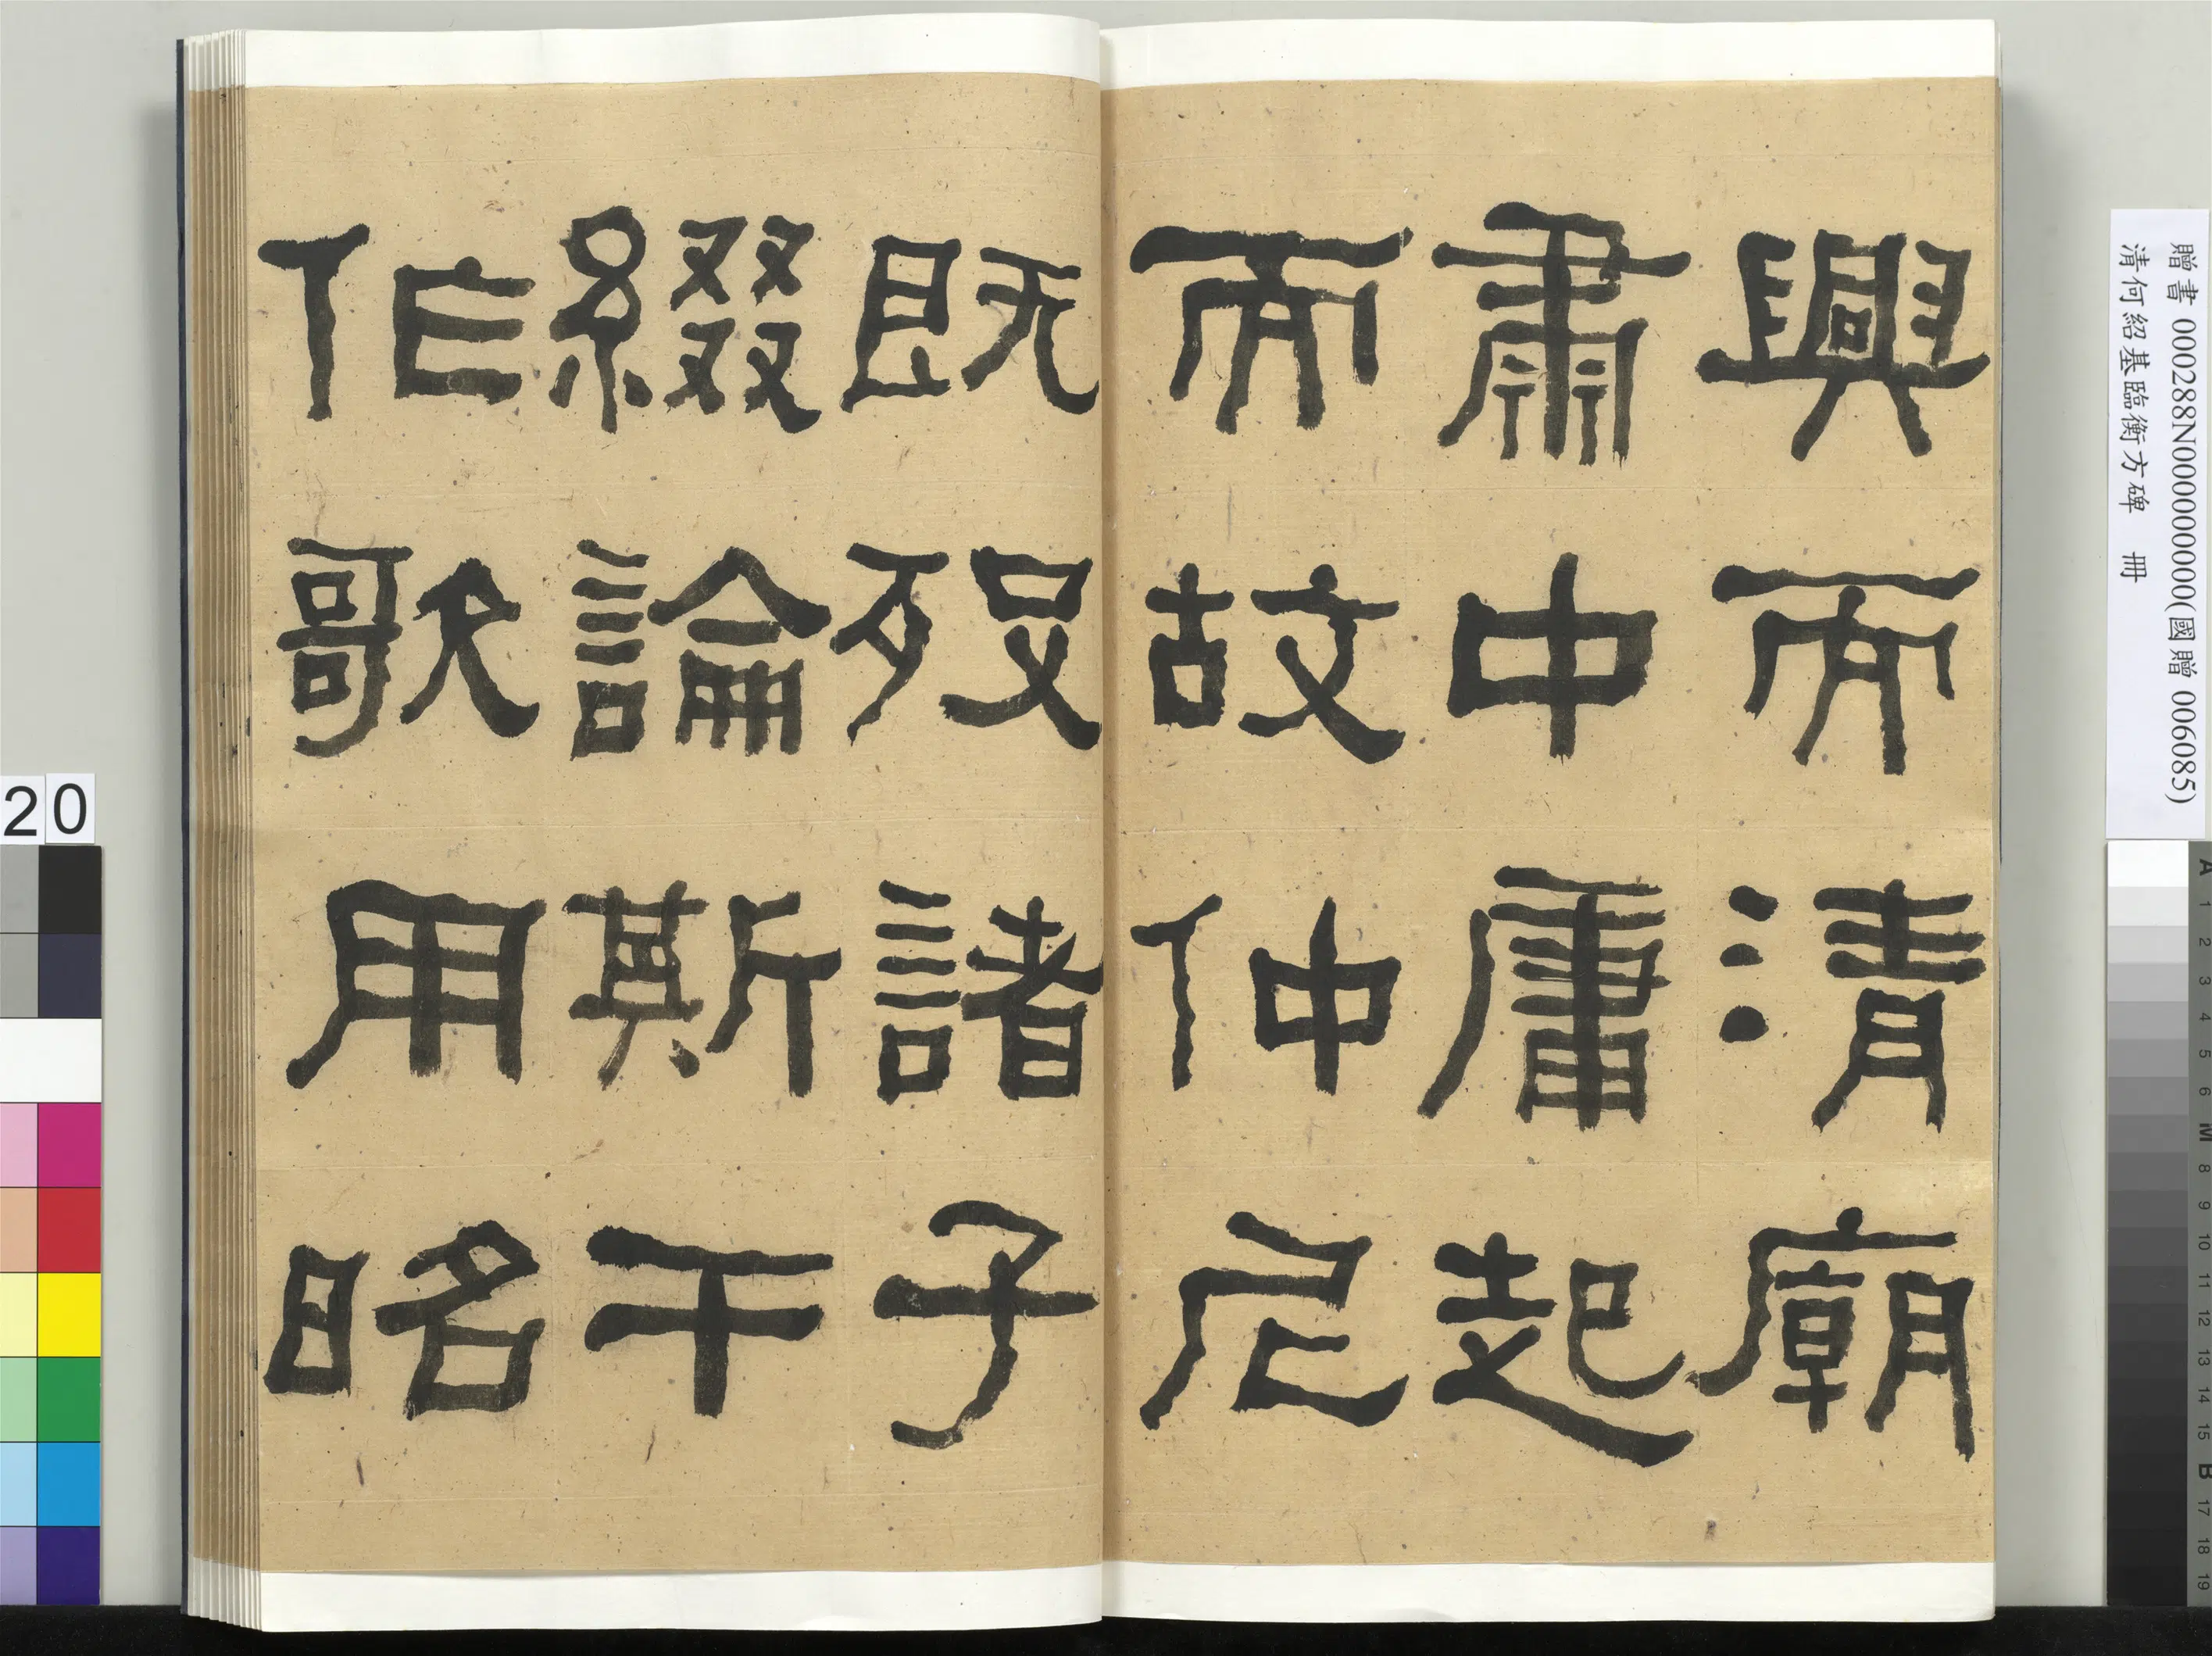 興而清廟
肅中庸起
而故仲尼
既歿諸子
綴論斯干
作歌用昭
贈書 000288N000000000(國贈 006085)
清何紹基臨衡方碑 冊
20
A 1 2 3 4 5 6 M 8 9 10 11 12 13 14 15 B 17 18 19